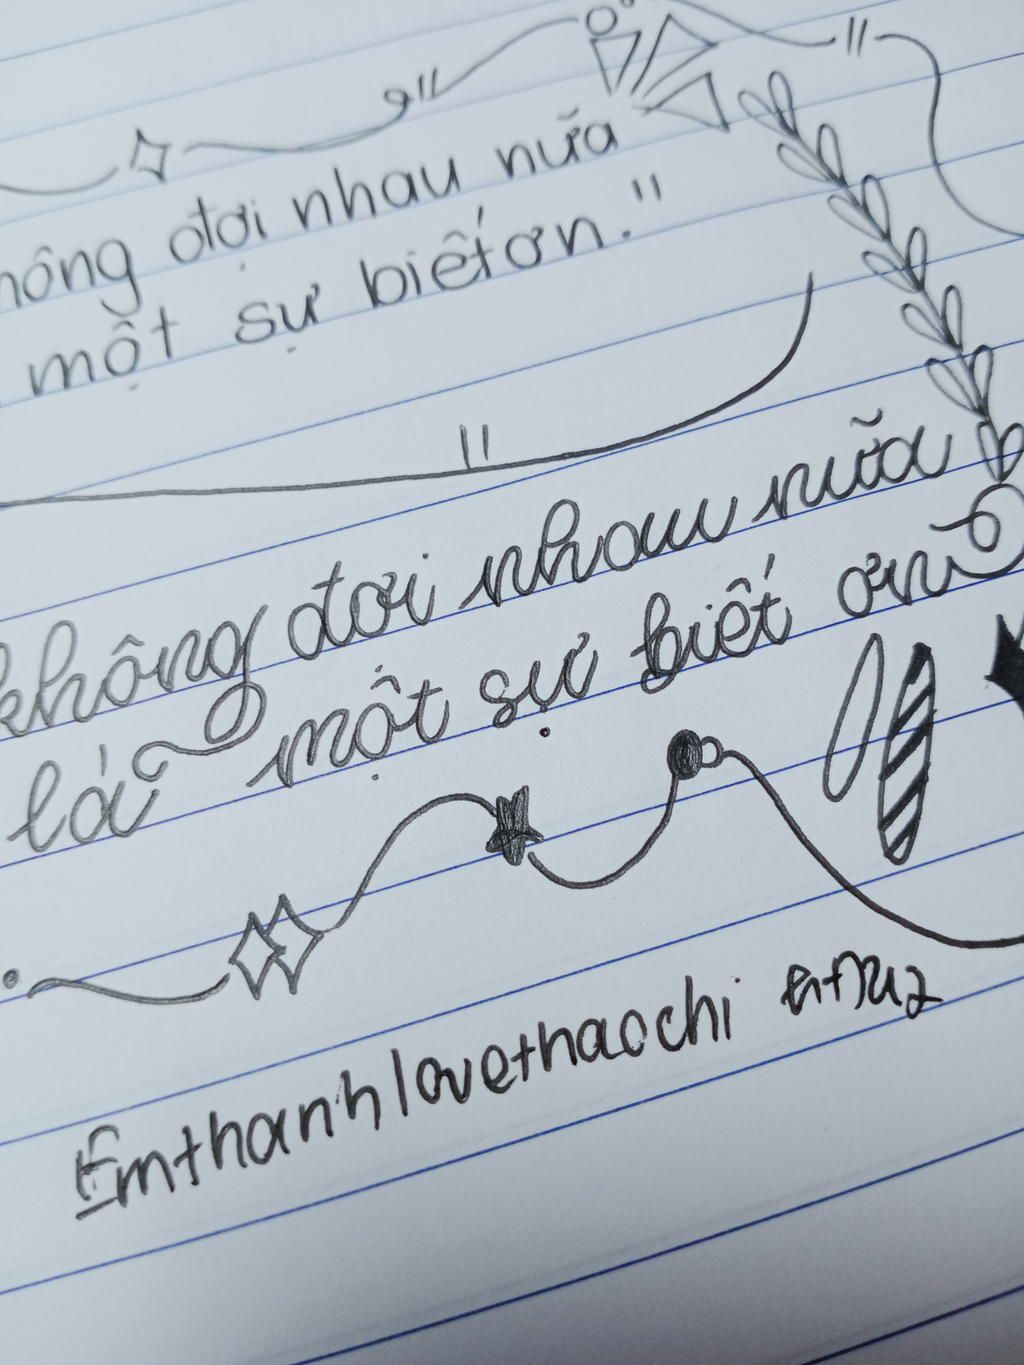 hông đợi nhau nữa
một sự biết ơn."
không đợi nhau nữa
là một sự biết ơn
Emthanhlovethaochi